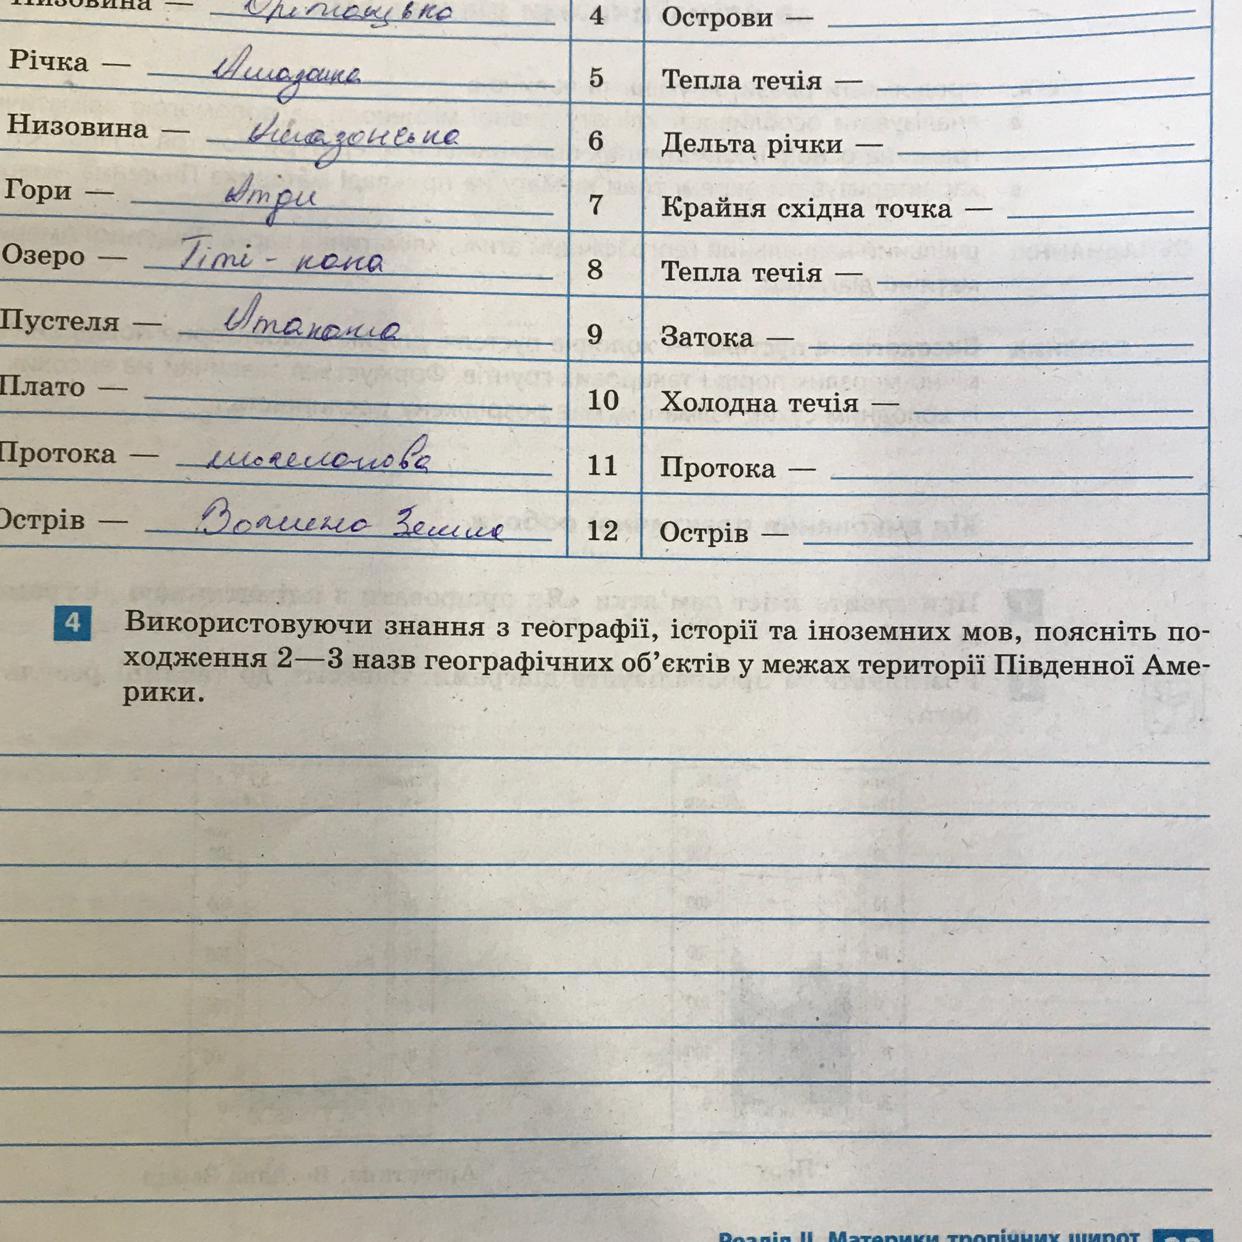 Низовина — Оріноцька 4 Острови —
Річка — Амазонка 5 Тепла течія —
Низовина — Амазонська 6 Дельта річки —
Гори — Анди 7 Крайня східна точка —
Озеро — Тіті - кака 8 Тепла течія —
Пустеля — Атакама 9 Затока —
Плато — 10 Холодна течія —
Протока — Магелланова 11 Протока —
Острів — Вогняна Земля 12 Острів —
4 Використовуючи знання з географії, історії та іноземних мов, поясніть по-
ходження 2—3 назв географічних об’єктів у межах території Південної Аме-
рики.
Розділ II. Материки тропічних широт